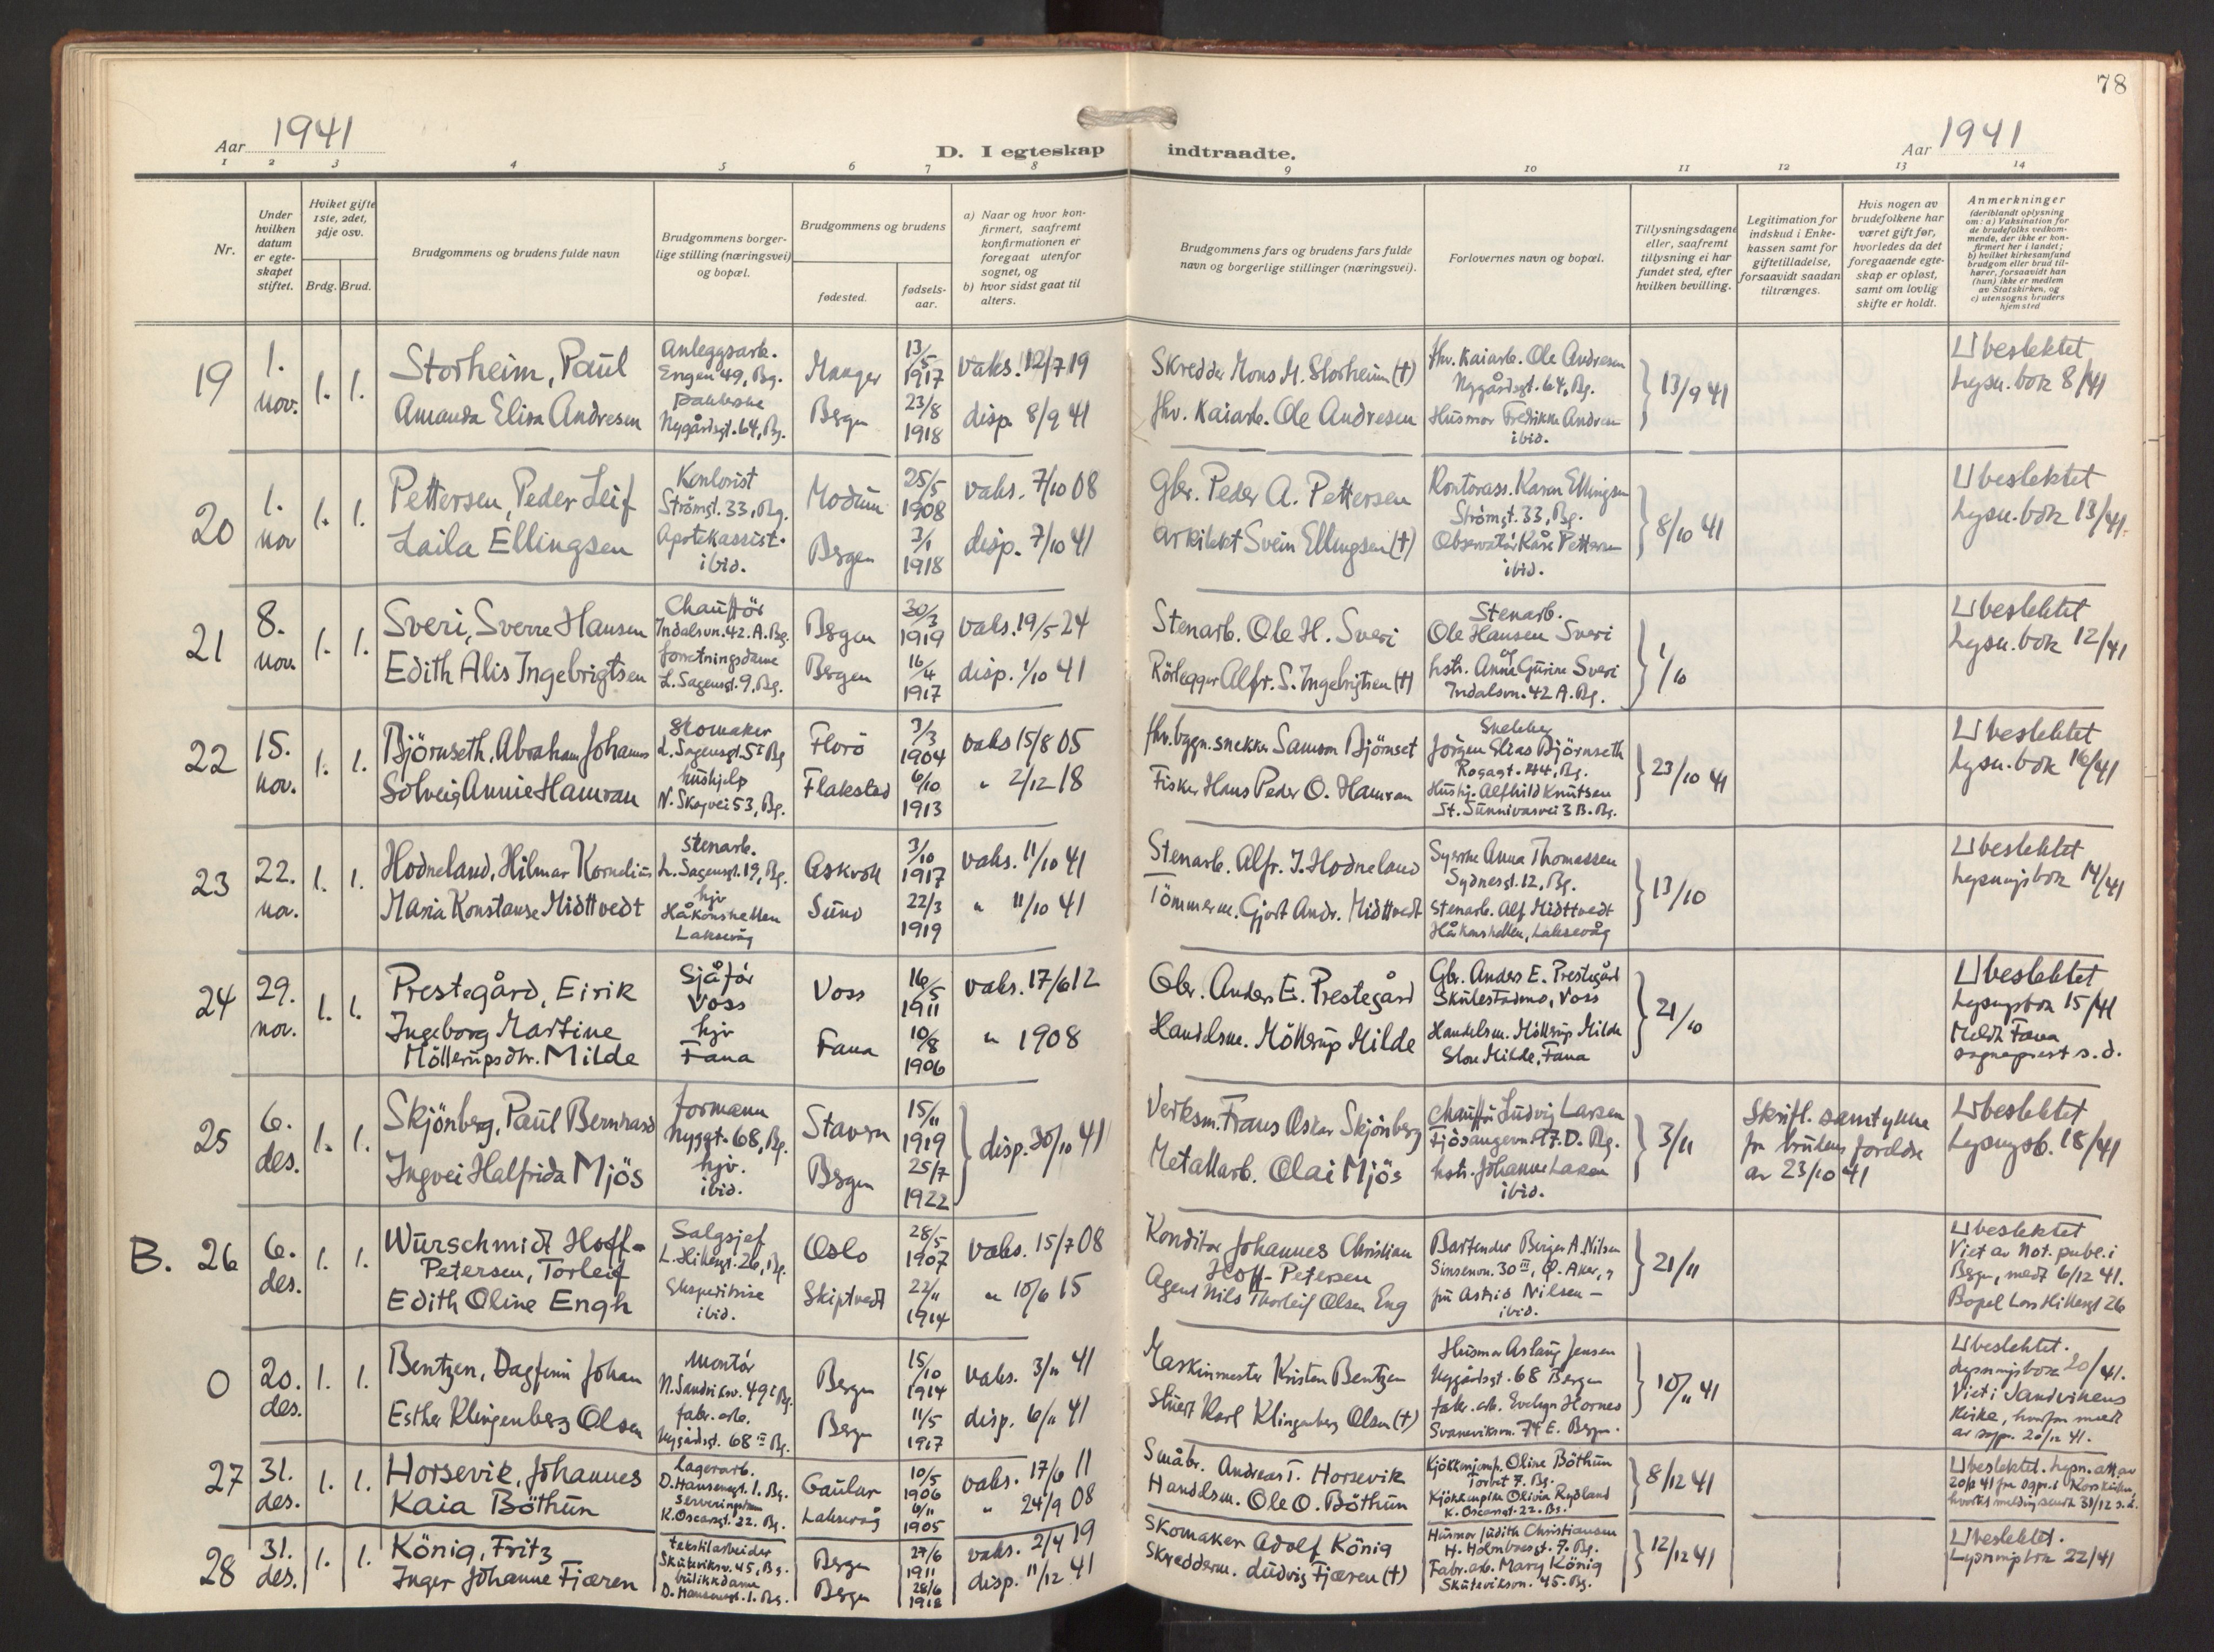 78
Aar 1941
D. I egteskap indtraadte.
Aar 1941
1 2 3 4 5 6 7 8 9 10 11 12 13 14
Nr.
Under hvilken datum er egte-skapet stiftet.
Hviket gifte 1ste, 2det, 3dje osv.
Brdg. Brud.
Brudgommens og brudens fulde navn
Brudgommens borger-lige stilling (næringsvei) og bopæl.
Brudgommens og brudens
fødested.
fødsels-aar.
a) Naar og hvor kon-firmert, saafremt konfirmationen er foregaat utenfor sognet, og
b) hvor sidst gaat til alters.
Brudgommens fars og brudens fars fulde navn og borgerlige stillinger (næringsvei).
Forlovernes navn og bopæl.
Tillysningsdagene eller, saafremt tillysning ei har fundet sted, efter hvilken bevilling.
Legitimation for indskud i Enke-kassen samt for giftetilladelse, forsaavidt saadan tiltrænges.
Hvis nogen av brudefolkene har været gift før, hvorledes da det foregaaende egte-skap er opløst, samt om lovlig skifte er holdt.
Anmerkninger
(deriblandt oplysning om: a) Vaksination for de brudefolks vedkom-mende, der ikke er kon-firmert her i landet; b) hvilket kirkesamfund brudgom eller brud til-hører, forsaavidt han (hun) ikke er medlem av Statskirken, og c) utensogns bruders hjemsted
19 1. nov. 1. 1.
Storheim, Paul
Anleggsarb. Engen 49, Bg.
Manger 13/5 1917 vaks. 12/7 19
Skredder Mons M. Storheim (†)
fhv. Kaiarb. Ole Andresen Nygårdsgt. 64, Bg.
13/9 41
Ubeslektet
Lysn. bok 8/41
Amanda Elisa Andresen
Nygårdsgt. 64, Bg.
Bergen 23/8 1918 disp. 8/9 41
fhv. Kaiarb. Ole Andresen
Husmor Fredrikke Andresen ibid.
20 1. nov 1. 1.
Pettersen, Peder Leif
Kontorist Strömgt. 33, Bg.
Modum 25/5 1908 vaks. 7/10 08
Gbr. Peder A. Pettersen
Kontorass. Karen Ellingsen Strömgt. 33, Bg.
8/10 41
Ubeslektet
Lysn. bok 13/41.
Laila Ellingsen
Apotekassist. ibid.
Bergen 3/1 1918 disp. 7/10 41
Arkitekt Svein Ellingsen (†)
Observatör Kåre Pettersen ibid.
21 8. nov. 1. 1.
Sveri, Sverre Hansen
Chaufför Indalsvn. 42. A. Bg.
Bergen 30/3 1919 vaks. 19/5 24
Stenarb. Ole H. Sveri
Stenarb. Ole Hansen Sveri og
1/10
Ubeslektet
Lysn. bok 12/41
Edith Alis Ingebrigtsen
forretningsdame L. Sagensgt. 9, Bg.
Bergen 16/4 1917 disp. 1/10 41
Rörlegger Alfr. S. Ingebrigtsen (†)
hstr. Anne Gurine Sveri Indalsvn. 42 A. Bg.
22 15. nov. 1. 1.
Björnseth, Abraham Johannes
Skomaker L. Sagensgt. 5 I Bg
Florö 3/3 1904 vaks 15/8 05
fhv. bygn. snekker Samson Björnset
Snekker Jörgen Elias Björnseth Rogagt. 44, Bg.
23/10 41
Ubeslektet
Lysn. bok 16/41
Solveig Annie Hamran
hushjelp N. Skogvei 53, Bg.
Flakstad 6/10 1913 " 2/12 18
Fisker Hans Peder O. Hamran
Hushj. Alfhild Knutsen St. Sunnivasvei 3 B. Bg.
23 22. nov. 1. 1.
Hodneland, Hilmar Kornelius
Stenarb. L. Sagensgt. 19, Bg.
Askvoll 3/10 1917 vaks. 11/10 41
Stenarb. Alfr. J. Hodneland
Syerske Anna Thomassen Sydnesgt. 12, Bg.
13/10
Ubeslektet
Lysningsbok 14/41
Maria Konstanse Midttvedt
hjv Håkonshellen Laksevåg
Sund 22/3 1919 " 11/10 41
Tömmerm. Gjert Andr. Midttvedt
Stenarb. Alf Midttvedt Håkonshellen, Laksevåg
24 29. nov. 1. 1.
Prestegård, Eirik
Sjåför Voss
Voss 16/5 1911 vaks. 17/6 12
Gbr. Anders E. Prestegård
Gbr. Anders E. Prestegård Skulestadmo, Voss
21/10
Ubeslektet
Lysngsbok 15/41
Meldt Fana sogneprest s.d.
Ingeborg Martine Möllerupsdtr. Milde
hjv Fana
Fana 10/8 1906 " 1908
Handelsm. Möllerup Milde
Handelsm. Möllerup Milde Store Milde, Fana
25 6. des. 1. 1.
Skjönberg, Paul Bernhard
formann Nyggt. 68, Bg.
Stavern 15/11 1919
disp. 30/10 41
Verksm. Frans Oskar Skjönberg
Chaufför Ludvig Larsen Fjösangervn. 17. D. Bg.
3/11
Skriftl. samtykke fra brudens foreldre av 23/10 41
Ubeslektet
Lysngsb. 18/41
Ingvei Halfrida Mjös
hjv. ibid.
Bergen 25/7 1922
Metallarb. Olai Mjös
hstr. Johanne Larsen ibid.
B. 26 6. des. 1. 1.
Würschmidt Hoff-Petersen, Torleif
Salgsjef L. Hillesgt. 26, Bg.
Oslo 28/5 1907 vaks. 15/7 08
Konditor Johannes Christian Hoff-Petersen
Bartender Birger A. Nilsen Sinsenvn. 30 III, Ö. Aker, og
21/11
Ubeslektet
Viet av Not. publ. i Bergen, medt 6/12 41.
Bopel Lars Hillesgt 26
Edith Oline Engh
Ekspeditrise ibid.
Skiptvedt 22/11 1914 " 10/6 15
Agent Nils Thorleif Olsen Eng
fru Astrid Nilsen - ibid.
0 20. des. 1. 1.
Bentzen, Dagfinn Johan
Montör N. Sandviksv. 49 I Bg.
Bergen 15/10 1914 vaks. 3/11 41
Maskinmester Kristen Bentzen
Husmor Aslaug Jensen Nygårdsgt. 68 Bergen
10/11 41
Ubeslektet.
Lysningsbok 20/41.
Viet i Sandvikens Kirke, hvorfra medt av sogpr. 20/12 41.
Esther Klingenberg Olsen
fabr. arb. Nygårdsgt. 68 III Bg.
Bergen 11/5 1917 disp. 6/11 41
Stuert Karl Klingenberg Olsen (†)
fabr. arb. Evelyn Hornes Sandviksvn. 74 E. Bergen.
27 31. des. 1. 1.
Horsevik, Johannes
Lagerarb. D. Hansensgt. 1. Bg.
Gaular 10/5 1906 vaks. 17/6 11
Småbr. Andreas T. Horsevik
Kjökkenjomf. Oline Böthun Torvet 7. Bg.
8/12 41
Ubeslektet. Lysn. att av
Kaia Böthun
K. Oscarsgt. 22. Bg.
Laksevåg 6/11 1905 " 24/9 08
Handelsm. Ole O. Böthun
Kjökkenpike Olivia Rydland K. Oscarsgt. 22. Bg.
28 31. des. 1. 1.
König, Fritz
tekstilarbeider Skuteviksv. 45, Bg.
Bergen 27/6 1911 vaks. 2/4 19
Skomaker Adolf König
Husmor Judith Christiansen H. Holmboesgt. 7. Bg.
12/12 41
Ubeslektet.
Lysningsbok 22/41
Inger Johanne Fjæren
butikkdame D. Hansensgt. 1. Bg.
Bergen 28/6 1918 disp. 11/12 41
Skredderm. Ludvig Fjæren (†)
Fabr. arb. Mary König Skuteviksvn. 45. Bg.